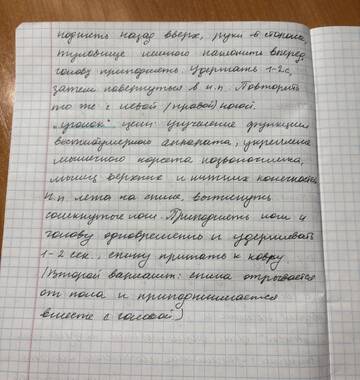 поднять назад вверх, руки в стороны,
туловище немного наклонить вперед,
голову приподнять. Удержать 1-2с,
затем вернуться в и.п. Повторить
то же с левой (правой) ногой.
"Уголок" цели: улучшение функции
вестибулярного аппарата, укрепление
мышечного корсета позвоночника,
мышц верхних и нижних конечностей
И.п. лежа на спине, вытянуть
сомкнутые ноги. Приподнять ноги и
голову одновременно и удерживать
1-2 сек., спину прижать к ковру
(Второй вариант: спина отрывается
от пола и приподнимается
вместе с головой)